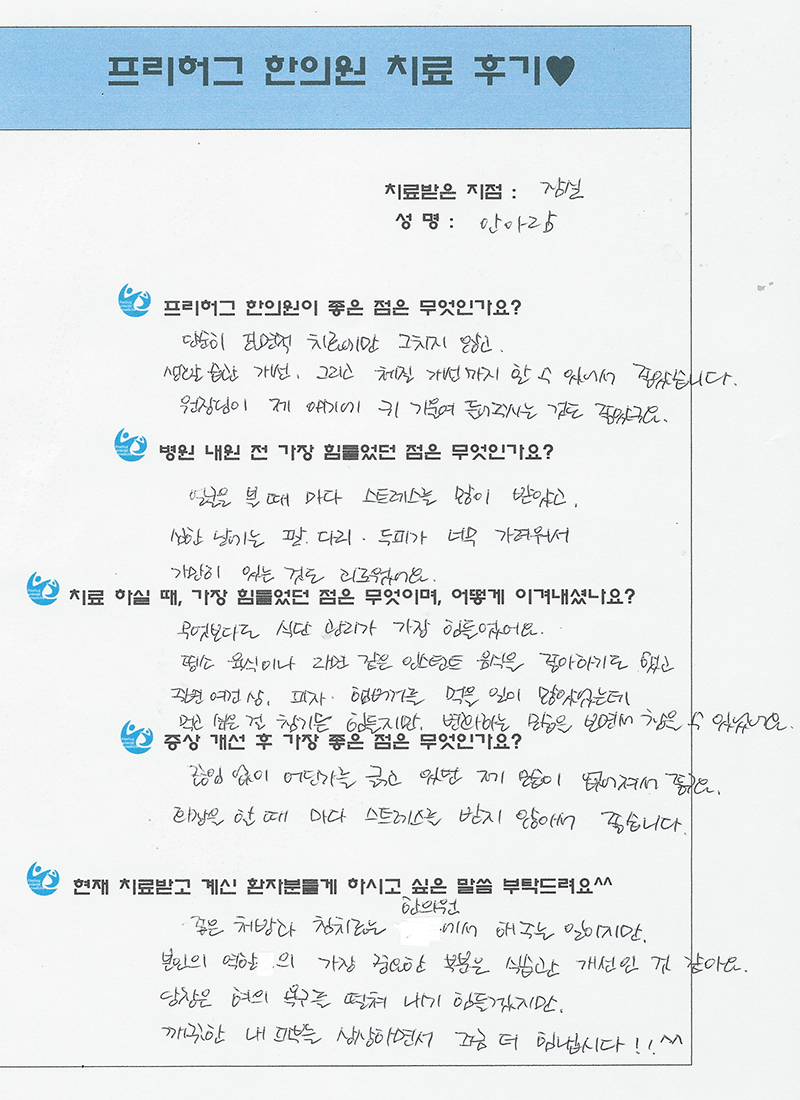 프리허그 한의원 치료 후기♥
치료받은 지점 : 잠실
성 명 : 안아람
프리허그 한의원이 좋은 점은 무엇인가요?
단순히 표면적 치료에만 그치지 않고,
생활 습관 개선, 그리고 체질 개선까지 할 수 있어서 좋았습니다.
원장님이 제 얘기에 귀 기울여 들어주시는 것도 좋았구요.
병원 내원 전 가장 힘들었던 점은 무엇인가요?
거울을 볼 때 마다 스트레스를 많이 받았고,
심한 날에는 팔. 다리. 두피가 너무 가려워서
가만히 있는 것도 괴로웠어요.
치료 하실 때, 가장 힘들었던 점은 무엇이며, 어떻게 이겨내셨나요?
무엇보다도 식단 관리가 가장 힘들었어요.
평소 음식이나 라면 같은 인스턴트 음식을 좋아하기도 했고
직원 여건 상, 피자. 햄버거를 먹을 일이 많았었는데
먹고 싶은 걸 참기는 힘들지만, 변화하는 몸을 보면서 참을 수 있었어요.
증상 개선 후 가장 좋은 점은 무엇인가요?
끊임 없이 어딘가를 긁고 있던 제 모습이 없어져서 좋구요.
화장을 할 때 마다 스트레스를 받지 않아서 좋습니다.
현재 치료받고 계신 환자분들게 하시고 싶은 말씀 부탁드려요^^
한의원
좋은 처방과 침치료는 에서 해 주는 일이지만,
본인의 역할 의 가장 중요한 부분은 식습관 개선인 것 같아요.
당장은 혀의 욕구를 떨쳐 내기 힘들겠지만,
깨끗한 내 피부를 상상하면서 조금 더 힘냅시다!! ^^